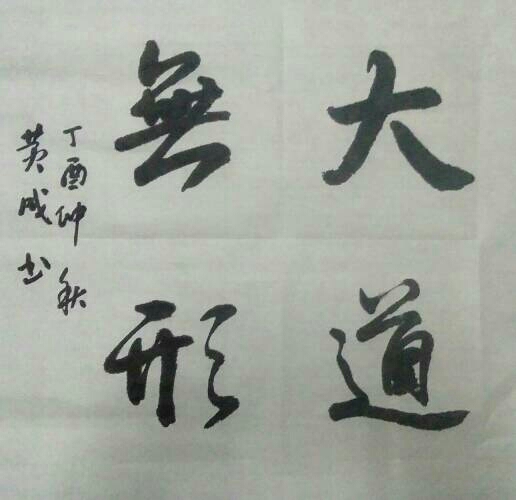 大道
無形
丁酉仲秋
黄成书